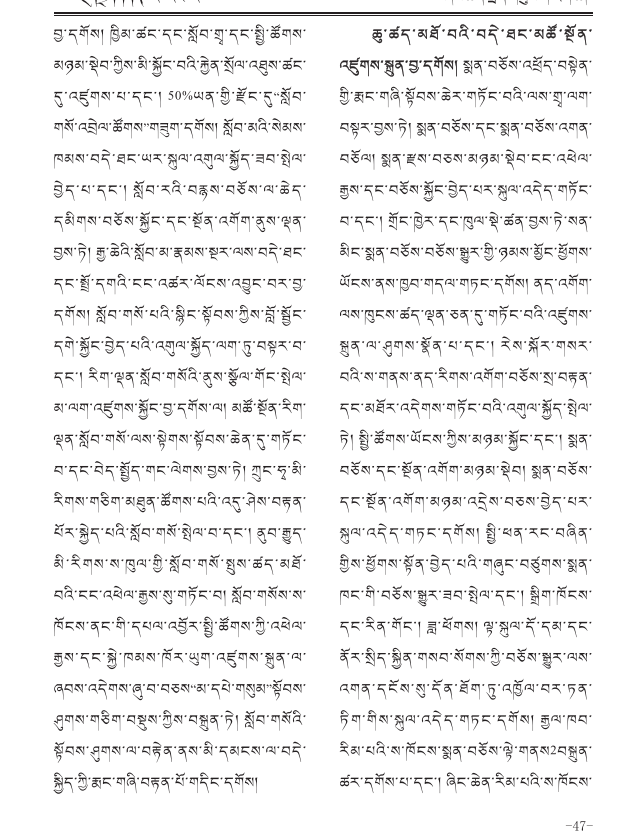 བྱ་དགོས། ཁྱིམ་ཚང་དང་སློབ་གྲྭ་དང་སྤྱི་ཚོགས་
མཉམ་སྡེབ་ཀྱིས་མི་སྐྱོང་བའི་རྐྱེན་སྲོལ་འཐུས་ཚང་
དུ་འཛུགས་པ་དང་། 50%ཡན་གྱི་རྫོང་དུ“སློབ་
གསོ་འབྲེལ་ཚོགས”གཟུག་དགོས། སློབ་མའི་སེམས་
ཁམས་བདེ་ཐང་ཡར་སྐུལ་འགུལ་སྐྱོད་ཟབ་སྤེལ་
བྱེད་པ་དང་། སློབ་རའི་བརྙས་བཅོས་ལ་ཆེད་
དམིགས་བཅོས་སྐྱོང་དང་སྔོན་འགོག་ནུས་ལྡན་
བྱས་ཏེ། རྒྱ་ཆེའི་སློབ་མ་རྣམས་སྔར་ལས་བདེ་ཐང་
དང་སྤྲོ་དགའི་ངང་འཚར་ལོངས་འབྱུང་བར་བྱ་
དགོས། སློབ་གསོ་པའི་སྙིང་སྟོབས་ཀྱིས་བློ་སྦྱོང་
དགེ་སྐྱོང་བྱེད་པའི་འགུལ་སྐྱོད་ལག་ཏུ་བསྟར་བ་
དང་། རིག་ལྡན་སློབ་གསོའི་ནུས་སྩོལ་གོང་སྤེལ་
མ་ལག་འཛུགས་སྐྱོང་བྱ་དགོས་ལ། མཚོ་སྔོན་རིག་
ལྡན་སློབ་གསོ་ལས་སྟེགས་སྟོབས་ཆེན་དུ་གཏོང་
བ་དང་བེད་སྤྱོད་གང་ལེགས་བྱས་ཏེ། ཀྲུང་ཧྭ་མི་
རིགས་གཅིག་མཐུན་ཚོགས་པའི་འདུ་ཤེས་བརྟན་
པོར་སྐྱེད་པའི་སློབ་གསོ་སྤེལ་བ་དང་། ནུབ་རྒྱུད་
མི་རིགས་ས་ཁུལ་གྱི་སློབ་གསོ་སྤུས་ཚད་མཐོ་
བའི་ངང་འཕེལ་རྒྱས་སུ་གཏོང་བ། སློབ་གསོས་ས་
ཁོངས་ནང་གི་དཔལ་འབྱོར་སྤྱི་ཚོགས་ཀྱི་འཕེལ་
རྒྱས་དང་སྐྱེ་ཁམས་ཁོར་ཡུག་འཛུགས་སྐྲུན་ལ་
ཞབས་འདེགས་ཞུ་བ་བཅས“མ་དཔེ་གསུམ”སྟོབས་
ཤུགས་གཅིག་བསྡུས་ཀྱིས་བསྐྲུན་ཏེ། སློབ་གསོའི་
སྟོབས་ཤུགས་ལ་བརྟེན་ནས་མི་དམངས་ལ་བདེ་
སྐྱིད་ཀྱི་རྨང་གཞི་བརྟན་པོ་གདིང་དགོས།
ཆུ་ཚད་མཐོ་བའི་བདེ་ཐང་མཚོ་སྔོན་
འཛུགས་སྐྲུན་བྱ་དགོས། སྨན་བཅོས་འཕྲོད་བསྟེན་
གྱི་རྨང་གཞི་སྟོབས་ཆེར་གཏོང་བའི་ལས་གྲྭ་ལག་
བསྟར་བྱས་ཏེ། སྨན་བཅོས་དང་སྨན་བཅོས་འགན་
བཅོལ། སྨན་རྫས་བཅས་མཉམ་སྡེབ་ངང་འཕེལ་
རྒྱས་དང་བཅོས་སྐྱོང་བྱེད་པར་སྐུལ་འདེད་གཏོང་
བ་དང་། གྲོང་ཁྱེར་དང་ཁུལ་སྡེ་ཚན་བྱས་ཏེ་སན་
མིང་སྨན་བཅོས་བཅོས་སྒྱུར་གྱི་ཉམས་མྱོང་ཕྱོགས་
ཡོངས་ནས་ཁྱབ་གདལ་གཏང་དགོས། ནད་འགོག་
ལས་ཁུངས་ཚད་ལྡན་ཅན་དུ་གཏོང་བའི་འཛུགས་
སྐྲུན་ལ་ཤུགས་སྣོན་པ་དང་། རེས་སྐོར་གསར་
བའི་ས་གནས་ནད་རིགས་འགོག་བཅོས་སྲ་བརྟན་
དང་མཐོར་འདེགས་གཏོང་བའི་འགུལ་སྐྱོད་སྤེལ་
ཏེ། སྤྱི་ཚོགས་ཡོངས་ཀྱིས་མཉམ་སྐྱོང་དང་། སྨན་
བཅོས་དང་སྔོན་འགོག་མཉམ་སྡེབ། སྨན་བཅོས་
དང་སྔོན་འགོག་མཉམ་འདྲེས་བཅས་བྱེད་པར་
སྐུལ་འདེད་གཏང་དགོས། སྤྱི་ཕན་རང་བཞིན་
གྱིས་ཕྱོགས་སྟོན་བྱེད་པའི་གཞུང་བཙུགས་སྨན་
ཁང་གི་བཅོས་སྒྱུར་ཟབ་སྤེལ་དང་། སྒྲིག་ཁོངས་
དང་རིན་གོང་། ཟླ་ཕོགས། ལྟ་སྐུལ་དོ་དམ་དང་
ནོར་སྲིད་སྐྱིན་གསབ་སོགས་ཀྱི་བཅོས་སྒྱུར་ལས་
འགན་དངོས་སུ་དོན་ཐོག་ཏུ་འཁྱོལ་བར་ཏན་
ཏིག་གིས་སྐུལ་འདེད་གཏང་དགོས། རྒྱལ་ཁབ་
རིམ་པའི་ས་ཁོངས་སྨན་བཅོས་ལྟེ་གནས2བསྐྲུན་
ཚར་དགོས་པ་དང་། ཞིང་ཆེན་རིམ་པའི་ས་ཁོངས་
-47-